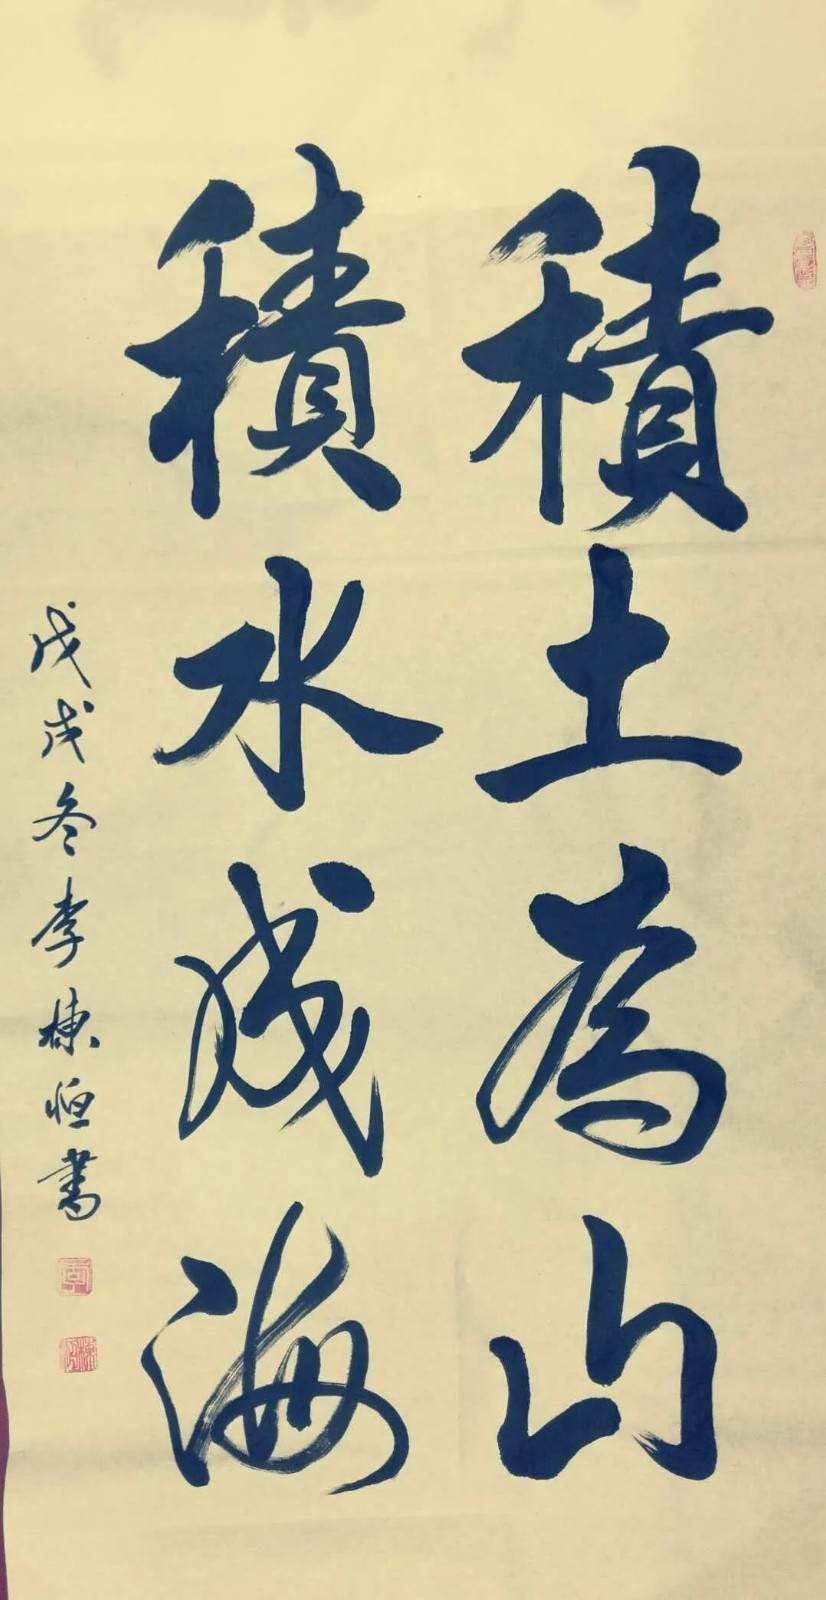 積土為山
積水成海
戊戌冬李棟恒書